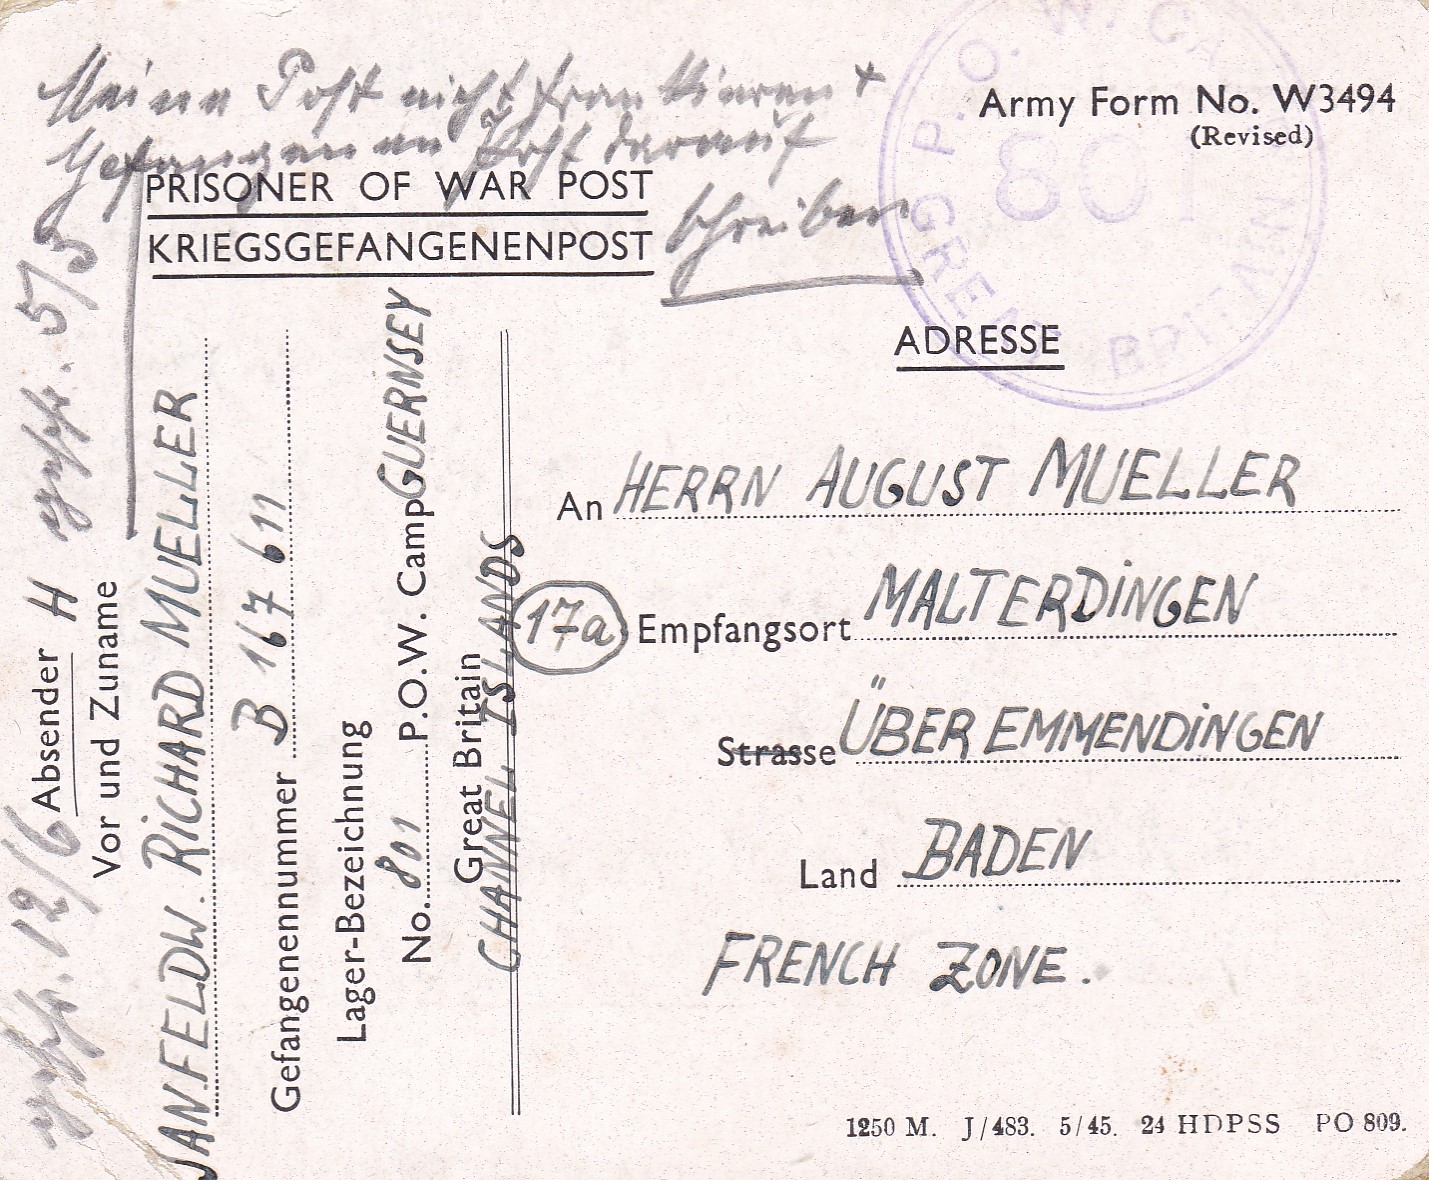 Meine Post nicht frankieren +
Gefangenen Post darauf
schreiben
Army Form No. W3494
(Revised)
P.O.W. CA
801
GREAT BRITAIN
PRISONER OF WAR POST
KRIEGSGEFANGENENPOST
ADRESSE
An HERRN AUGUST MUELLER
17a Empfangsort MALTERDINGEN
Strasse ÜBER EMMENDINGEN
Land BADEN
FRENCH ZONE.
1250 M. J/483. 5/45. 24 HDPSS PO 809.
geschr. 12/6
geschr. 5/5
Absender H
Vor und Zuname
SAN.FELDW. RICHARD MUELLER
Gefangenennummer B 167 611
Lager-Bezeichnung
No. 801 P.O.W. Camp GUERNSEY
Great Britain
CHANNEL ISLANDS